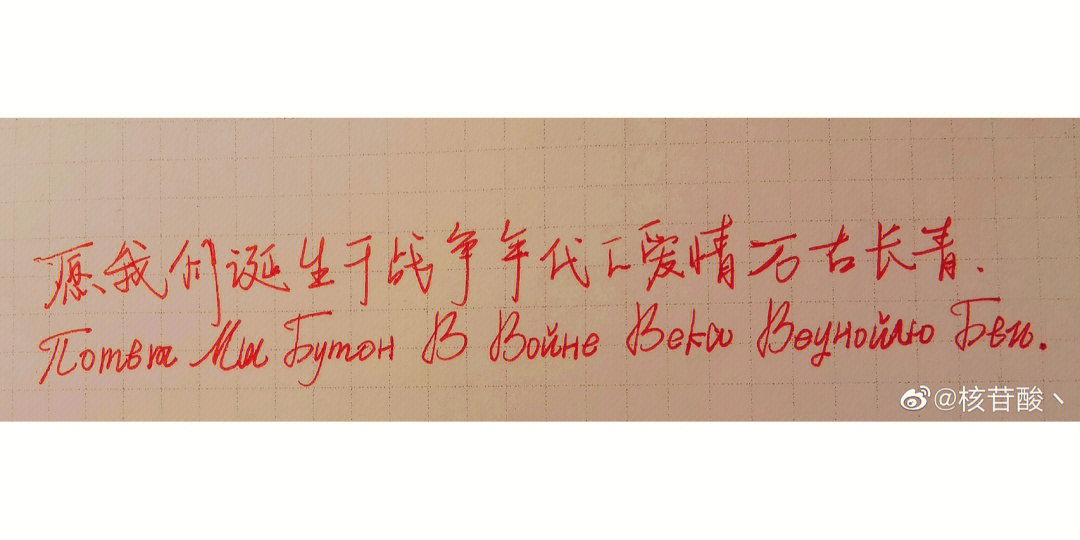 愿我们诞生于战争年代 爱情万古长青.
Потвга Ми Бутон В Войне Века Веуной Бви.
@核苷酸丶